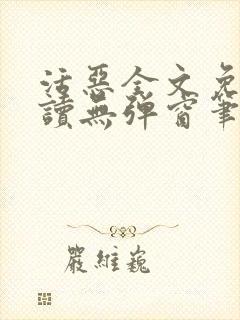 活惡全文免
讀無彈窗筆
嚴維巍